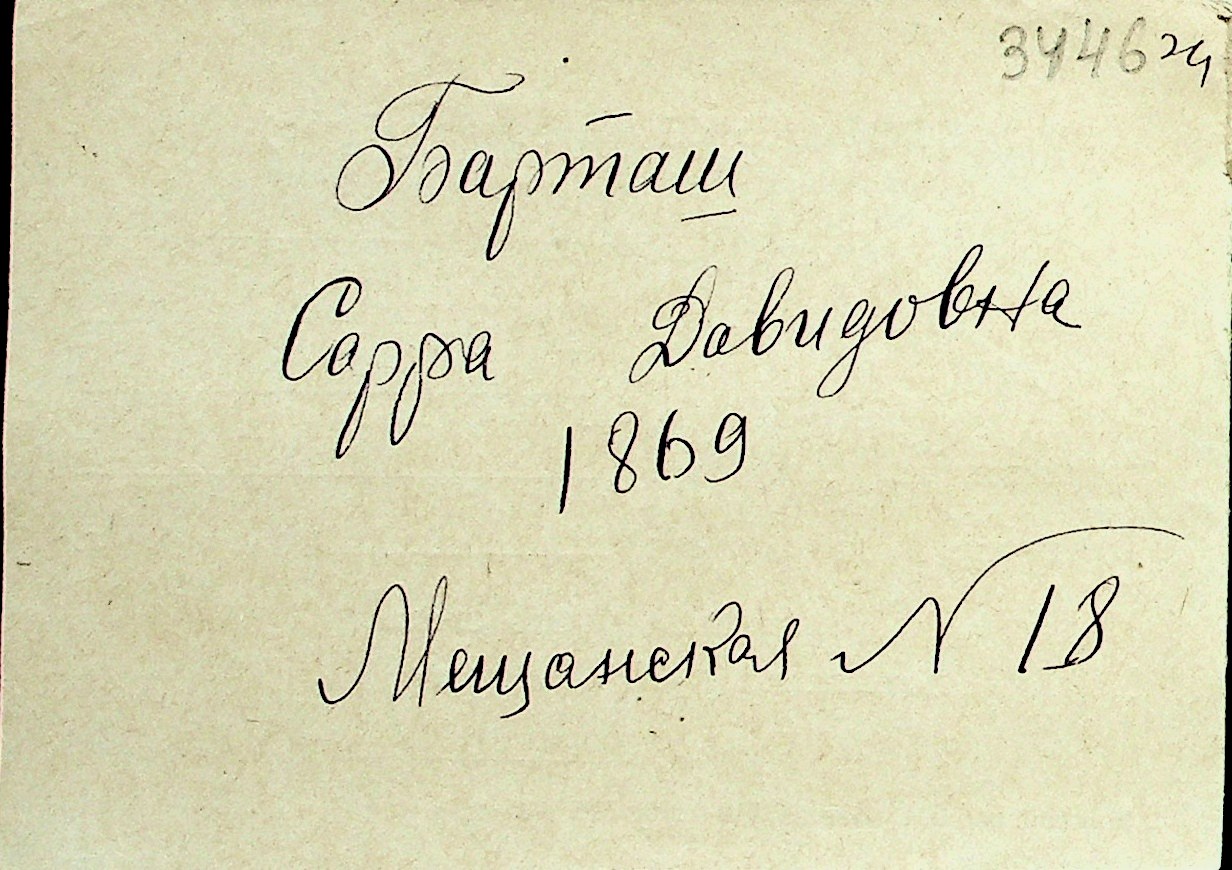 3446
Барташ
Сарра Давидовна
1869
Мещанская N 18